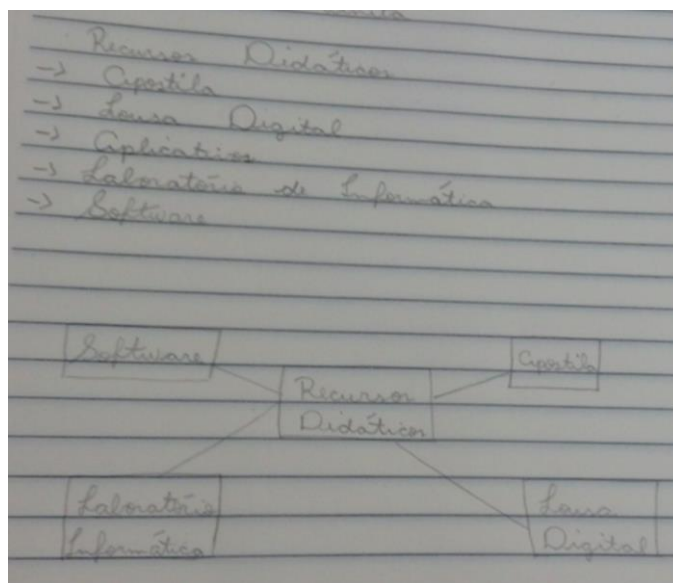 Recursos Didáticos
-> Apostila
-> Lousa Digital
-> Aplicativos
-> Laboratório de Informática
-> Software
Software
Apostila
Recursos
Didáticos
Laboratório
Informática
Lousa
Digital